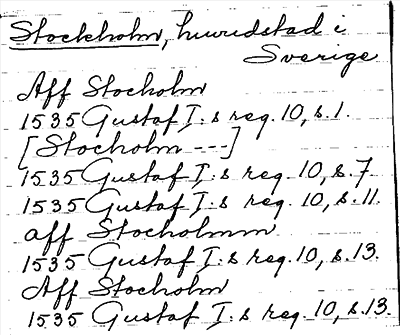 Stockholm, huvudstad i
Sverige
Aff Stocholm
1535 Gustaf I:s reg. 10, s. 1.
[Stocholm ---]
1535 Gustaf I:s reg. 10, s. 7.
1535 Gustaf I:s reg. 10, s. 11.
aff Stocholmm
1535 Gustaf I:s reg. 10, s. 13.
Aff Stocholm
1535 Gustaf I:s reg. 10, s. 13.